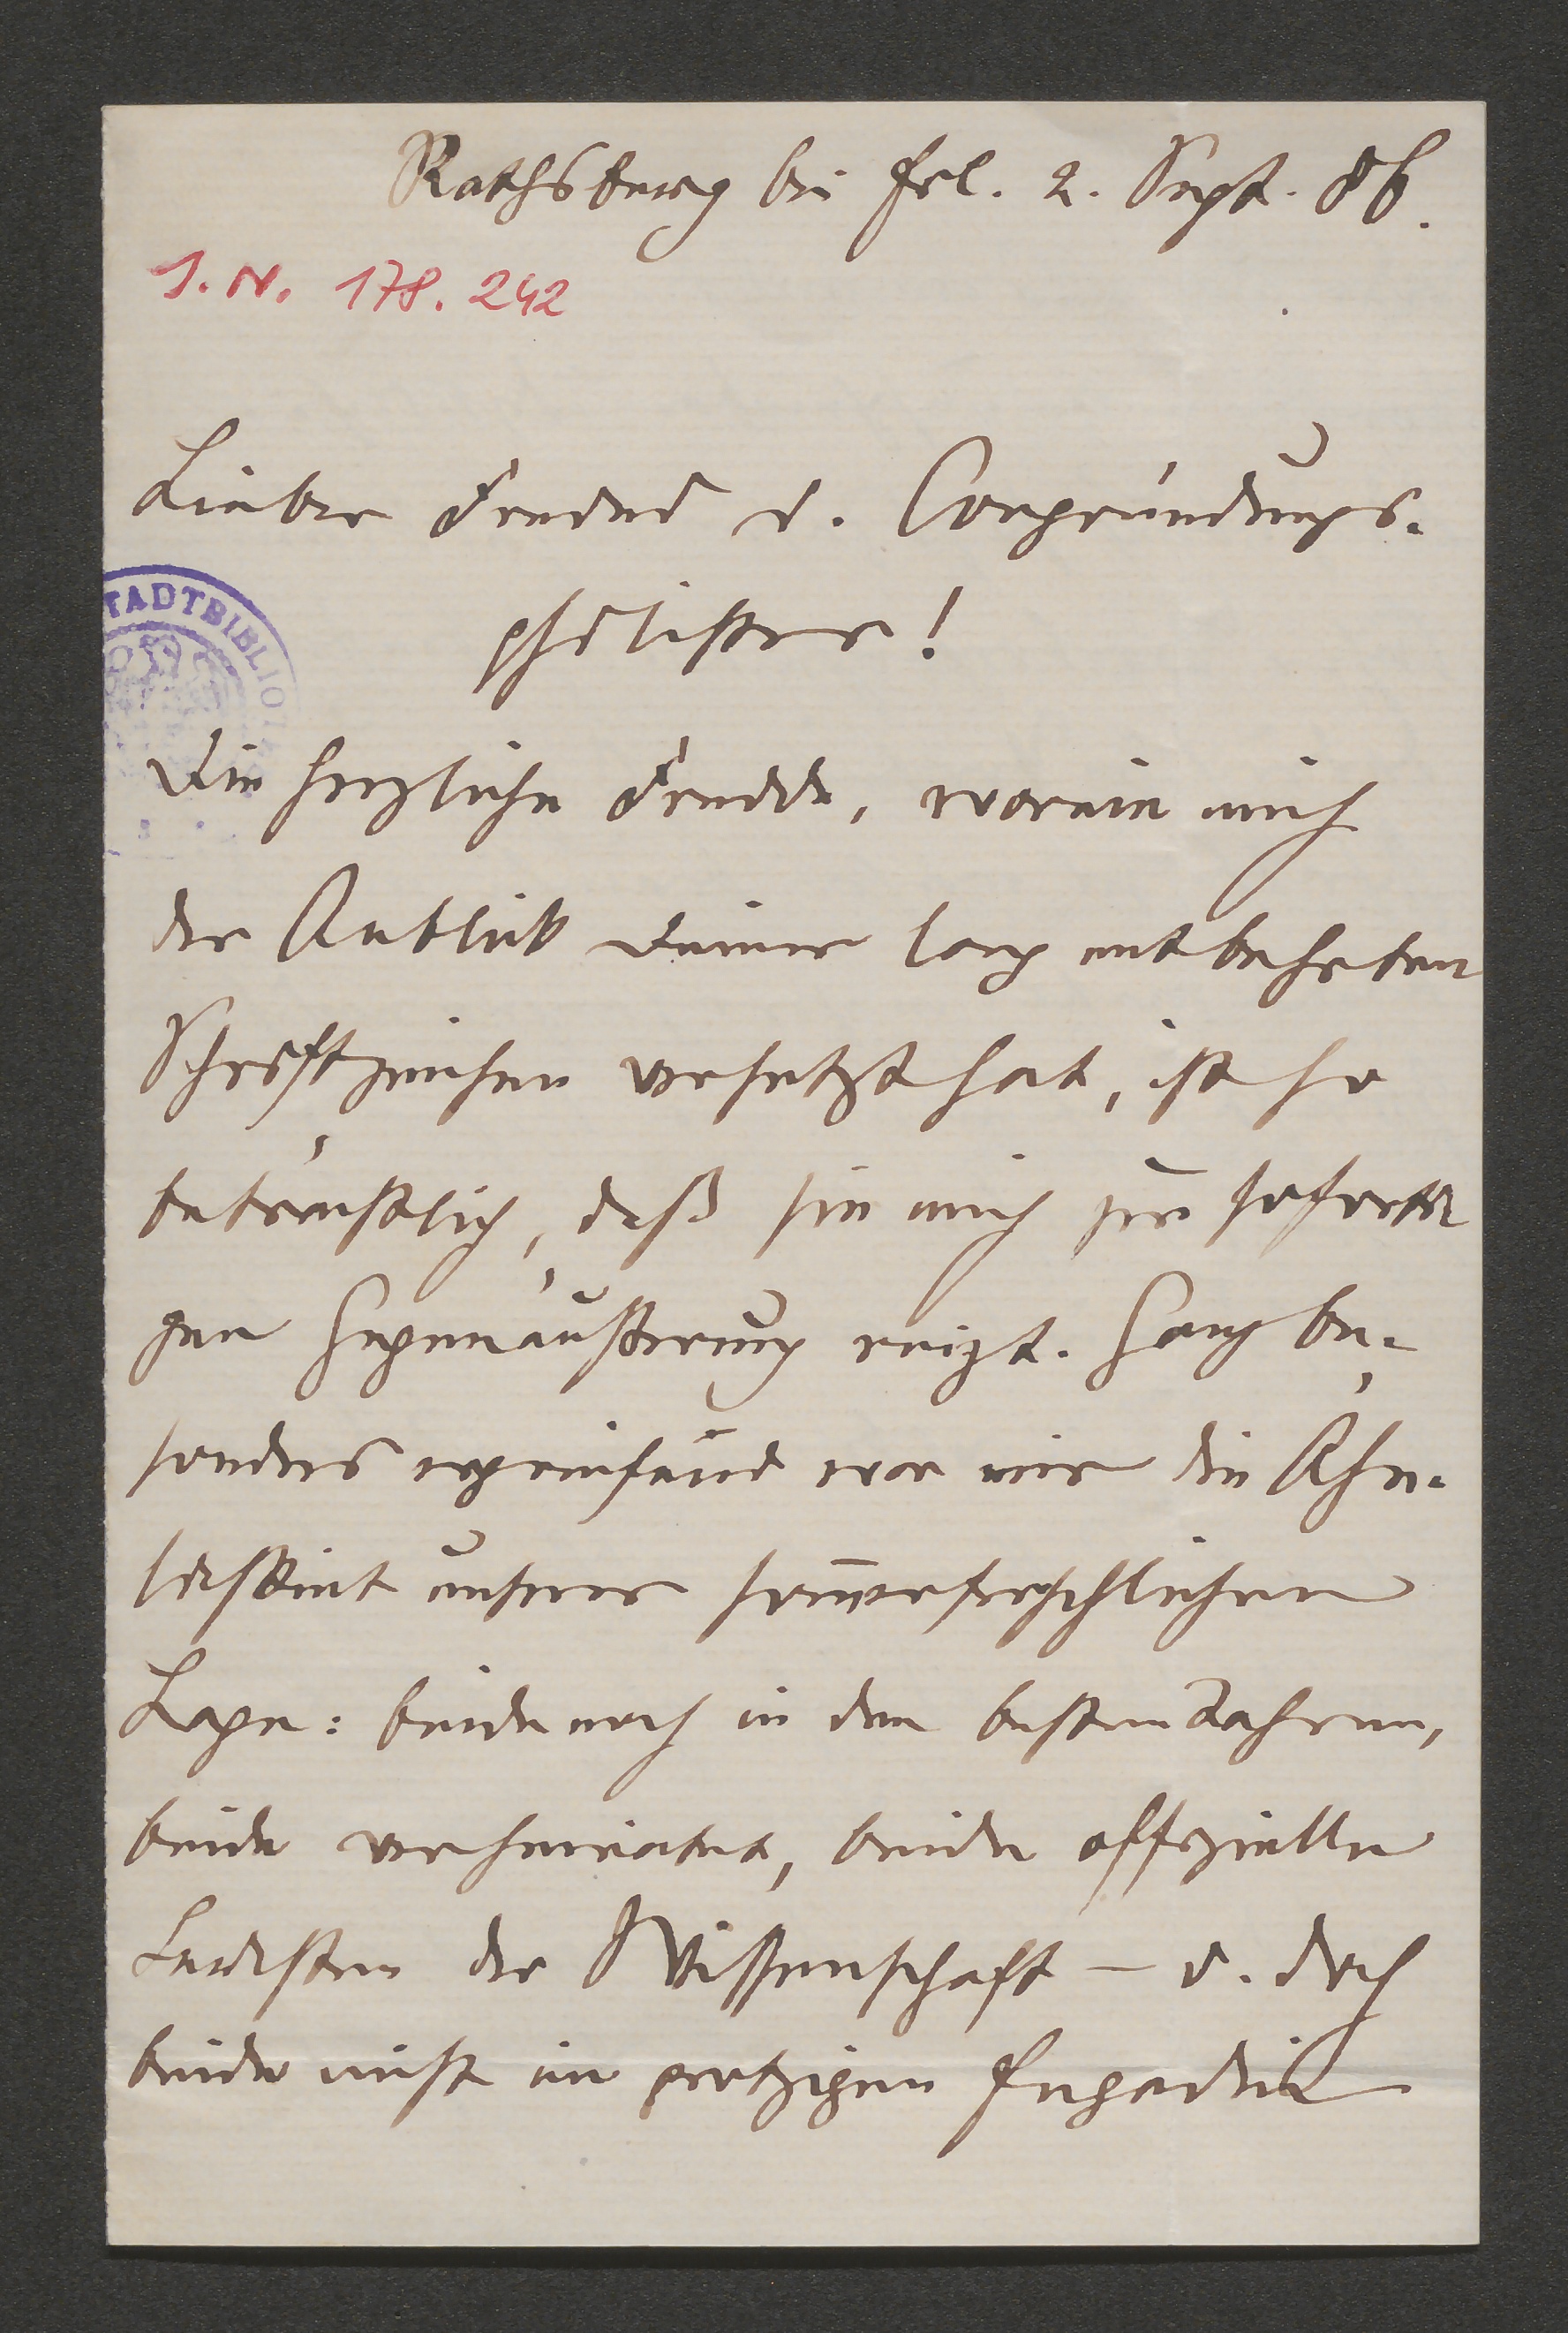 Rathsberg bei Erl. 2. Sept. 86.
I. N. 178.242
Lieber Freund u. Congründungs-
philister!
STADTBIBLIOT
Die herzliche Freude, worein mich
der Anblick Deiner lang entbehrten
Schriftzeichen versetzt hat, ist so
beträchtlich, daß sie mich zur soforti
gen Gegenäußerung reizt. Ganz be-
sonders ergreifend war mir die Ähn-
lichkeit unserer sommerfrischlichen
Lage: beide noch in den besten Jahren,
beide verheiratet, beide offizielle
Leuchten der Wissenschaft – u. doch
beide nicht im protzigen Engadin